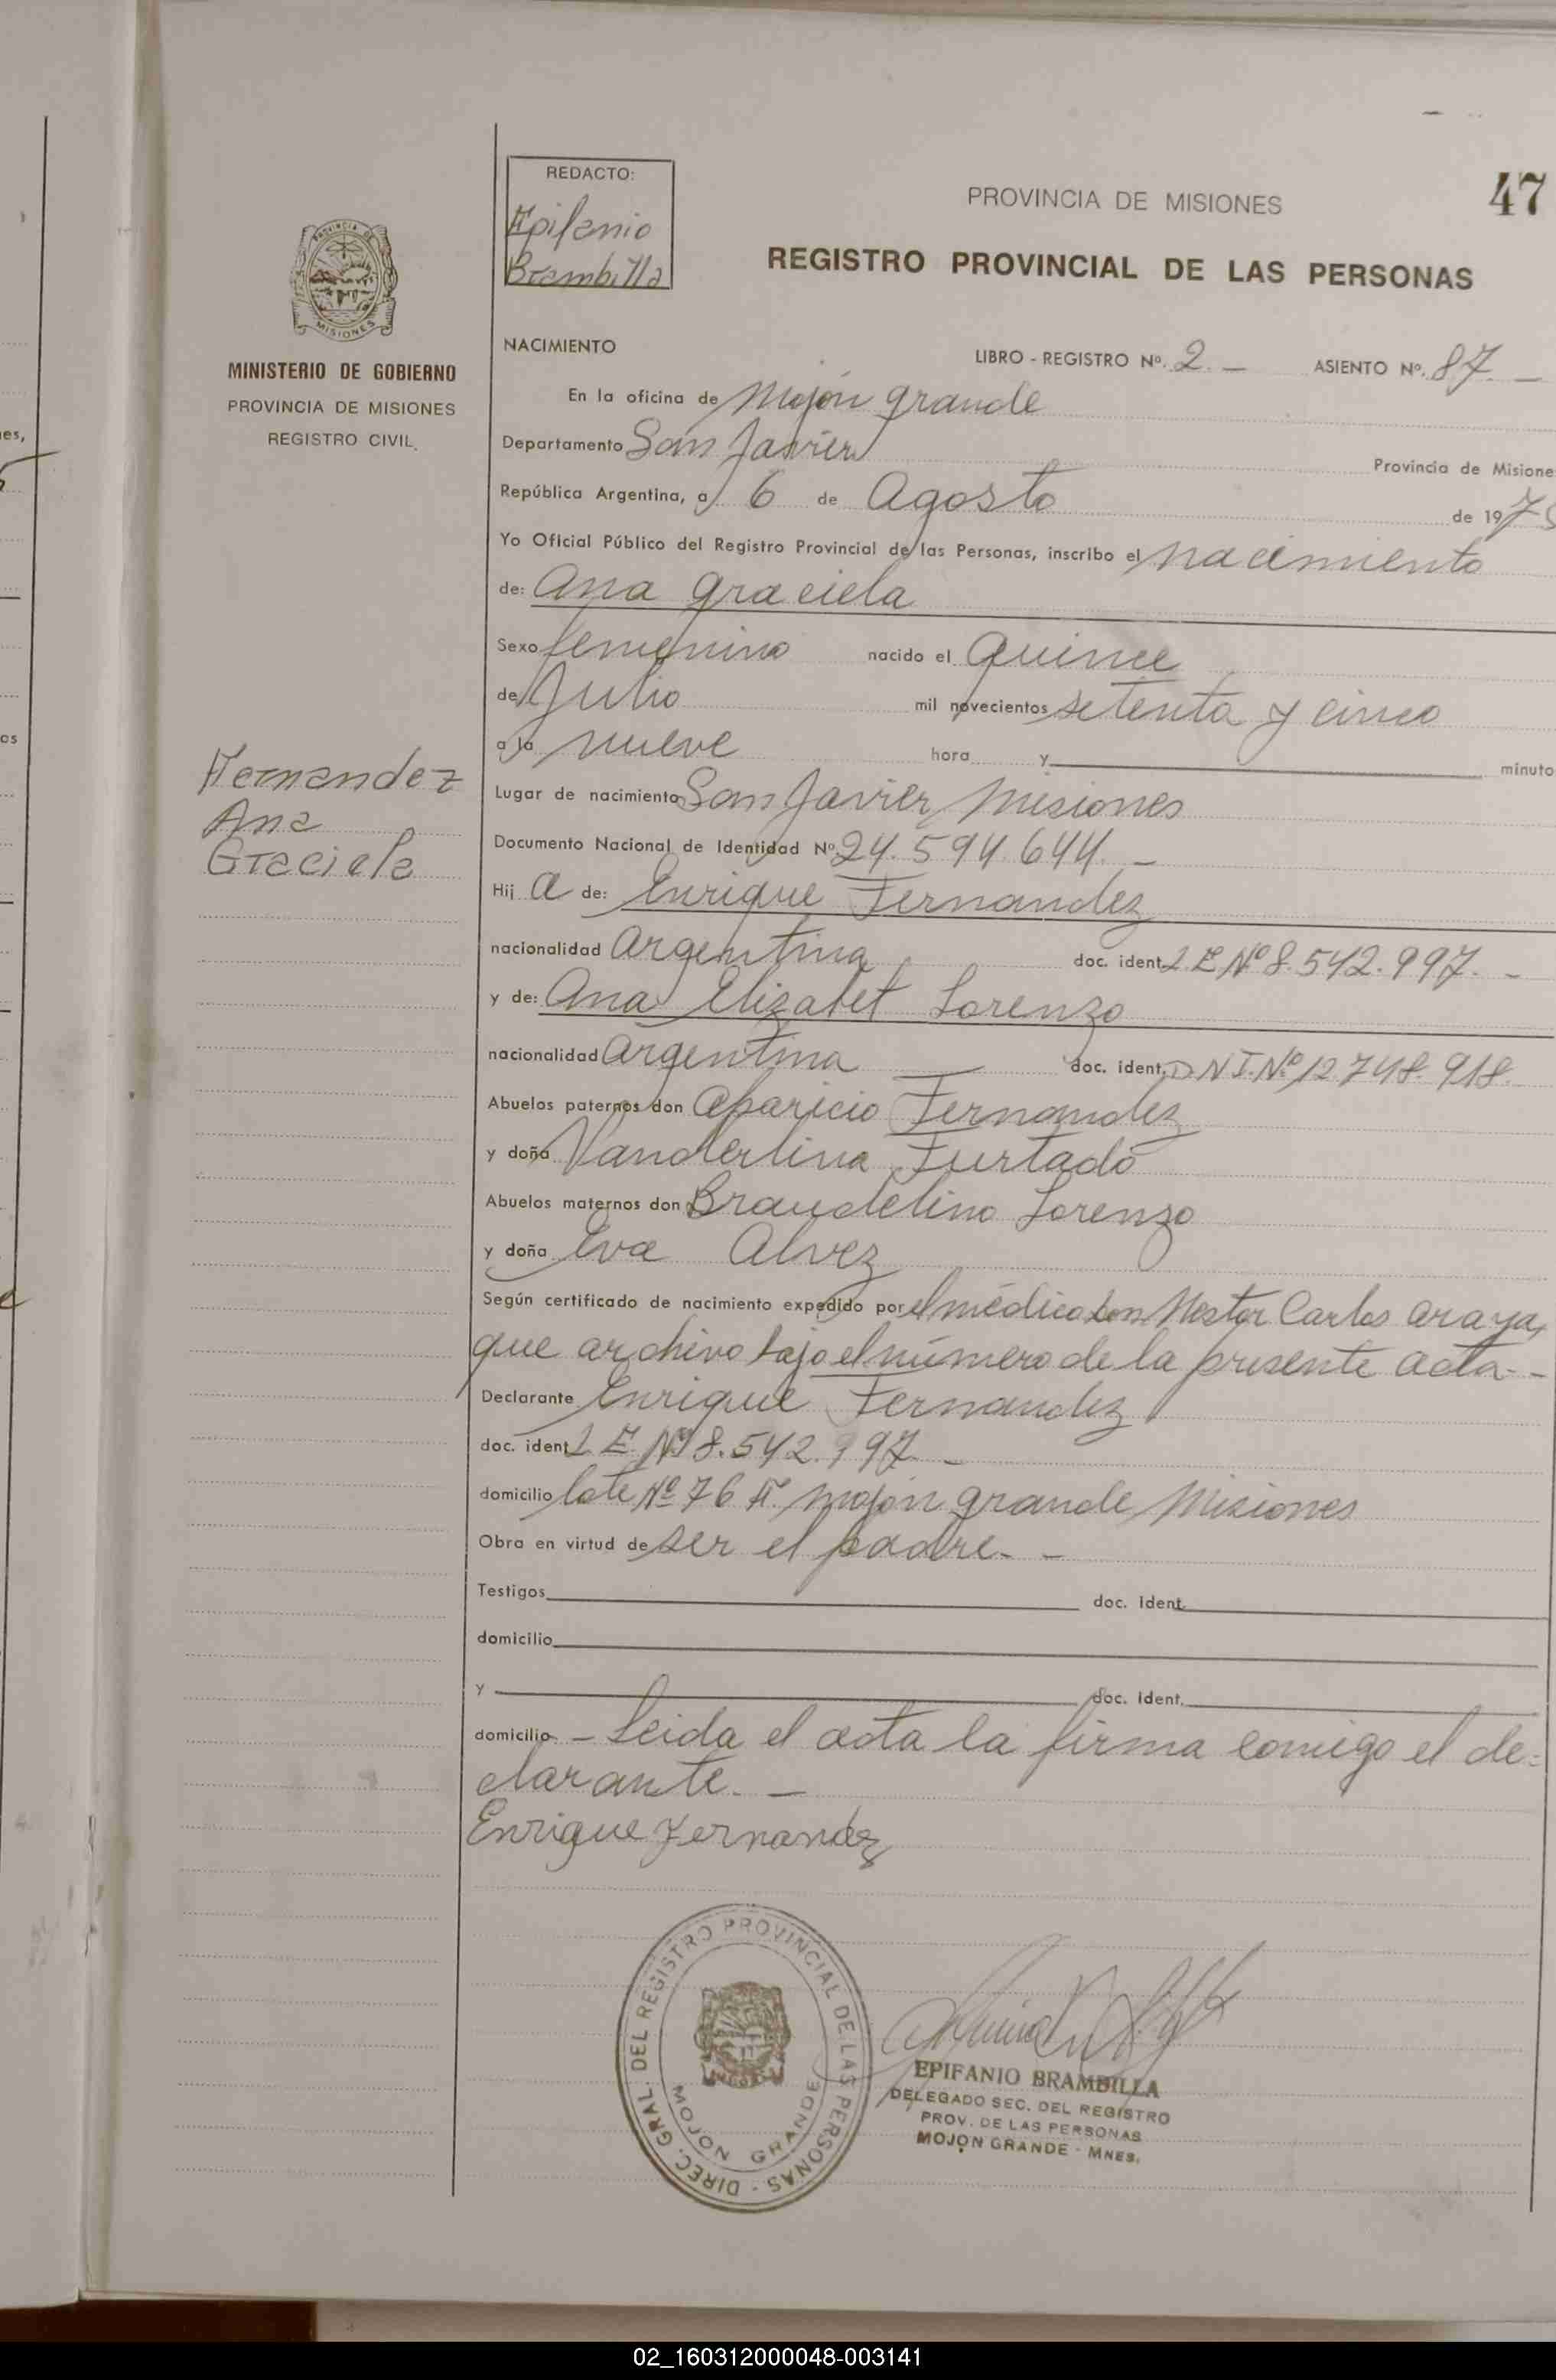 REDACTO:
Epifanio
Brambilla
47
PROVINCIA DE MISIONES
REGISTRO PROVINCIAL DE LAS PERSONAS
PROVINCIA DE
MISIONES
MINISTERIO DE GOBIERNO
PROVINCIA DE MISIONES
REGISTRO CIVIL
NACIMIENTO LIBRO - REGISTRO Nº. 2. - ASIENTO Nº. 87. -
En la oficina de Mojón grande
Departamento San Javier Provincia de Misione
República Argentina, a 6 de Agosto de 197
Yo Oficial Público del Registro Provincial de las Personas, inscribo el nacimiento
de: Ana Graciela
Sexo femenino nacido el Quince
de Julio mil novecientos setenta y cinco
a la nueve hora y minuto
Fernandez
Ana
Graciela
Lugar de nacimiento San Javier, Misiones
Documento Nacional de Identidad Nº 24.594.644. -
Hij a de: Enrique Fernandez
nacionalidad argentina doc. ident L E Nº 8.542.997. -
y de: Ana Elizabet Lorenzo
nacionalidad argentina doc. ident. D.N.I. Nº 12.748.918.
Abuelos paternos don Aparicio Fernandez
y doña Vanderlina Furtado
Abuelos maternos don Braudelino Lorenzo
y doña Eva Alvez
Según certificado de nacimiento expedido por el médico don Nestor Carlos Araya,
que archivo bajo el número de la presente acta. -
Declarante Enrique Fernandez
doc. ident L E. Nº 8.542.997. -
domicilio lote Nº 76 F. mojón grande Misiones
Obra en virtud de ser el padre. -
Testigos doc. Ident.
domicilio
y doc. Ident.
domicilio - Leida el acta la firma comigo el de=
clarante. -
Enrique Fernandez
DIREC. GRAL. DEL REGISTRO PROVINCIAL DE LAS PERSONAS -
MOJON GRANDE
EPIFANIO BRAMBILLA
DELEGADO SEC. DEL REGISTRO
PROV. DE LAS PERSONAS
MOJON GRANDE - MNES.
02_160312000048-003141